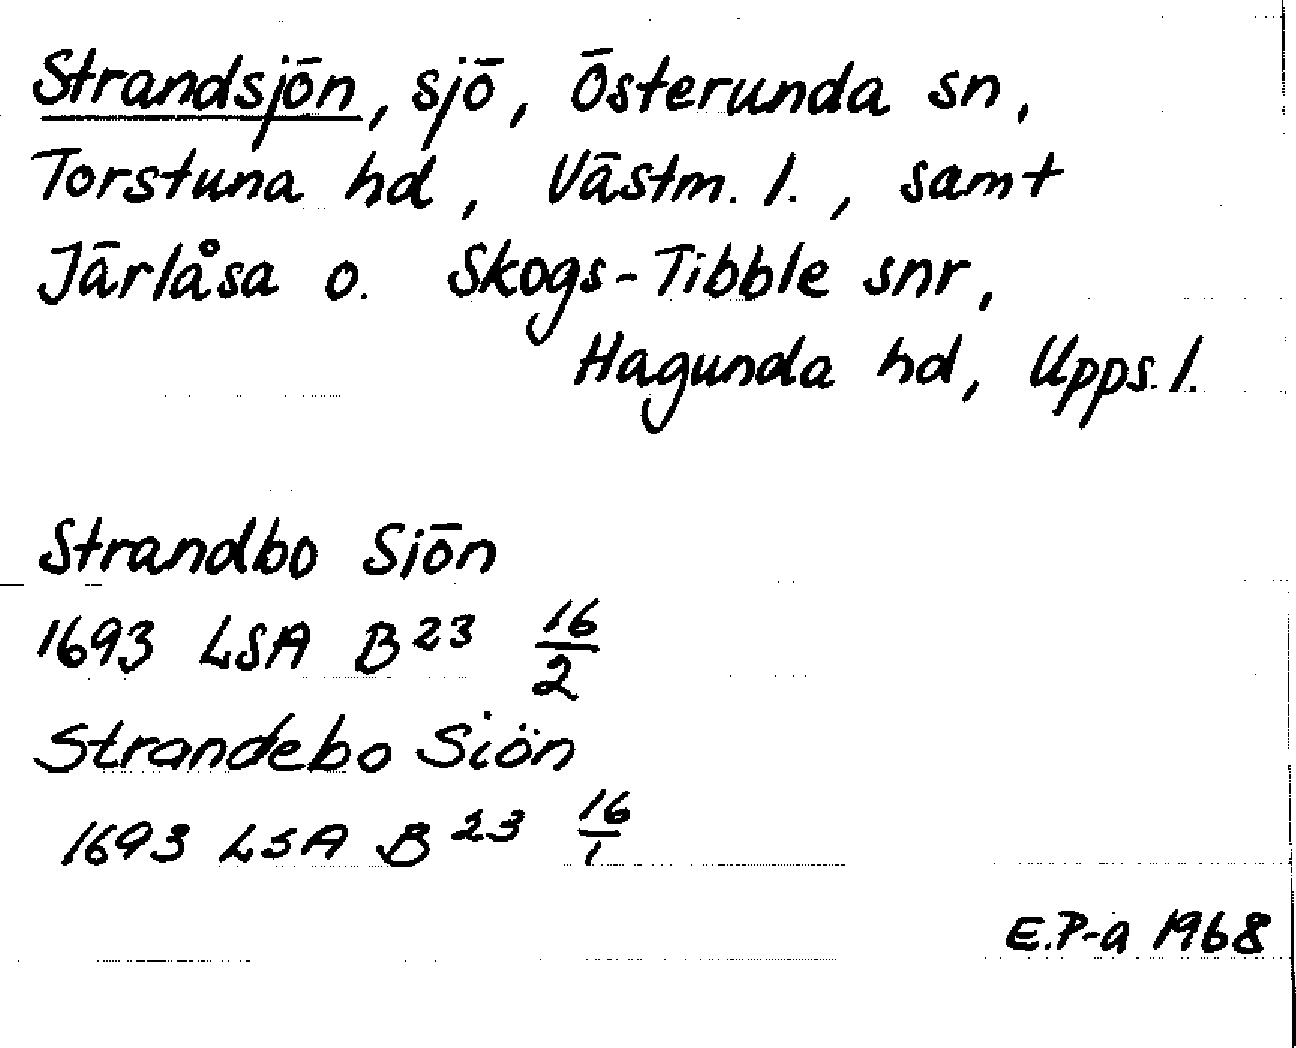 Strandsjön, sjö, Österunda sn,
Torstuna hd, Västm. l., samt
Järlåsa o. Skogs-Tibble snr,
Hagunda hd, Upps. l.
Strandbo Siön
1693 LSA B²³ 16/2
Strandebo Siön
1693 LSA B²³ 16/1
E.P-a 1968